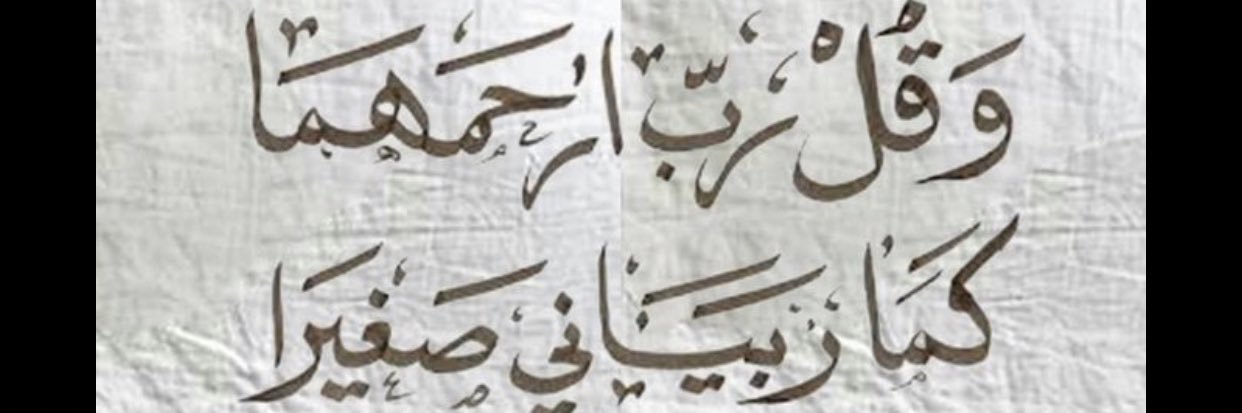 وَقُلْ رَبِّ ارْحَمْهُمَا
كَمَا رَبَّيَانِي صَغِيرًا